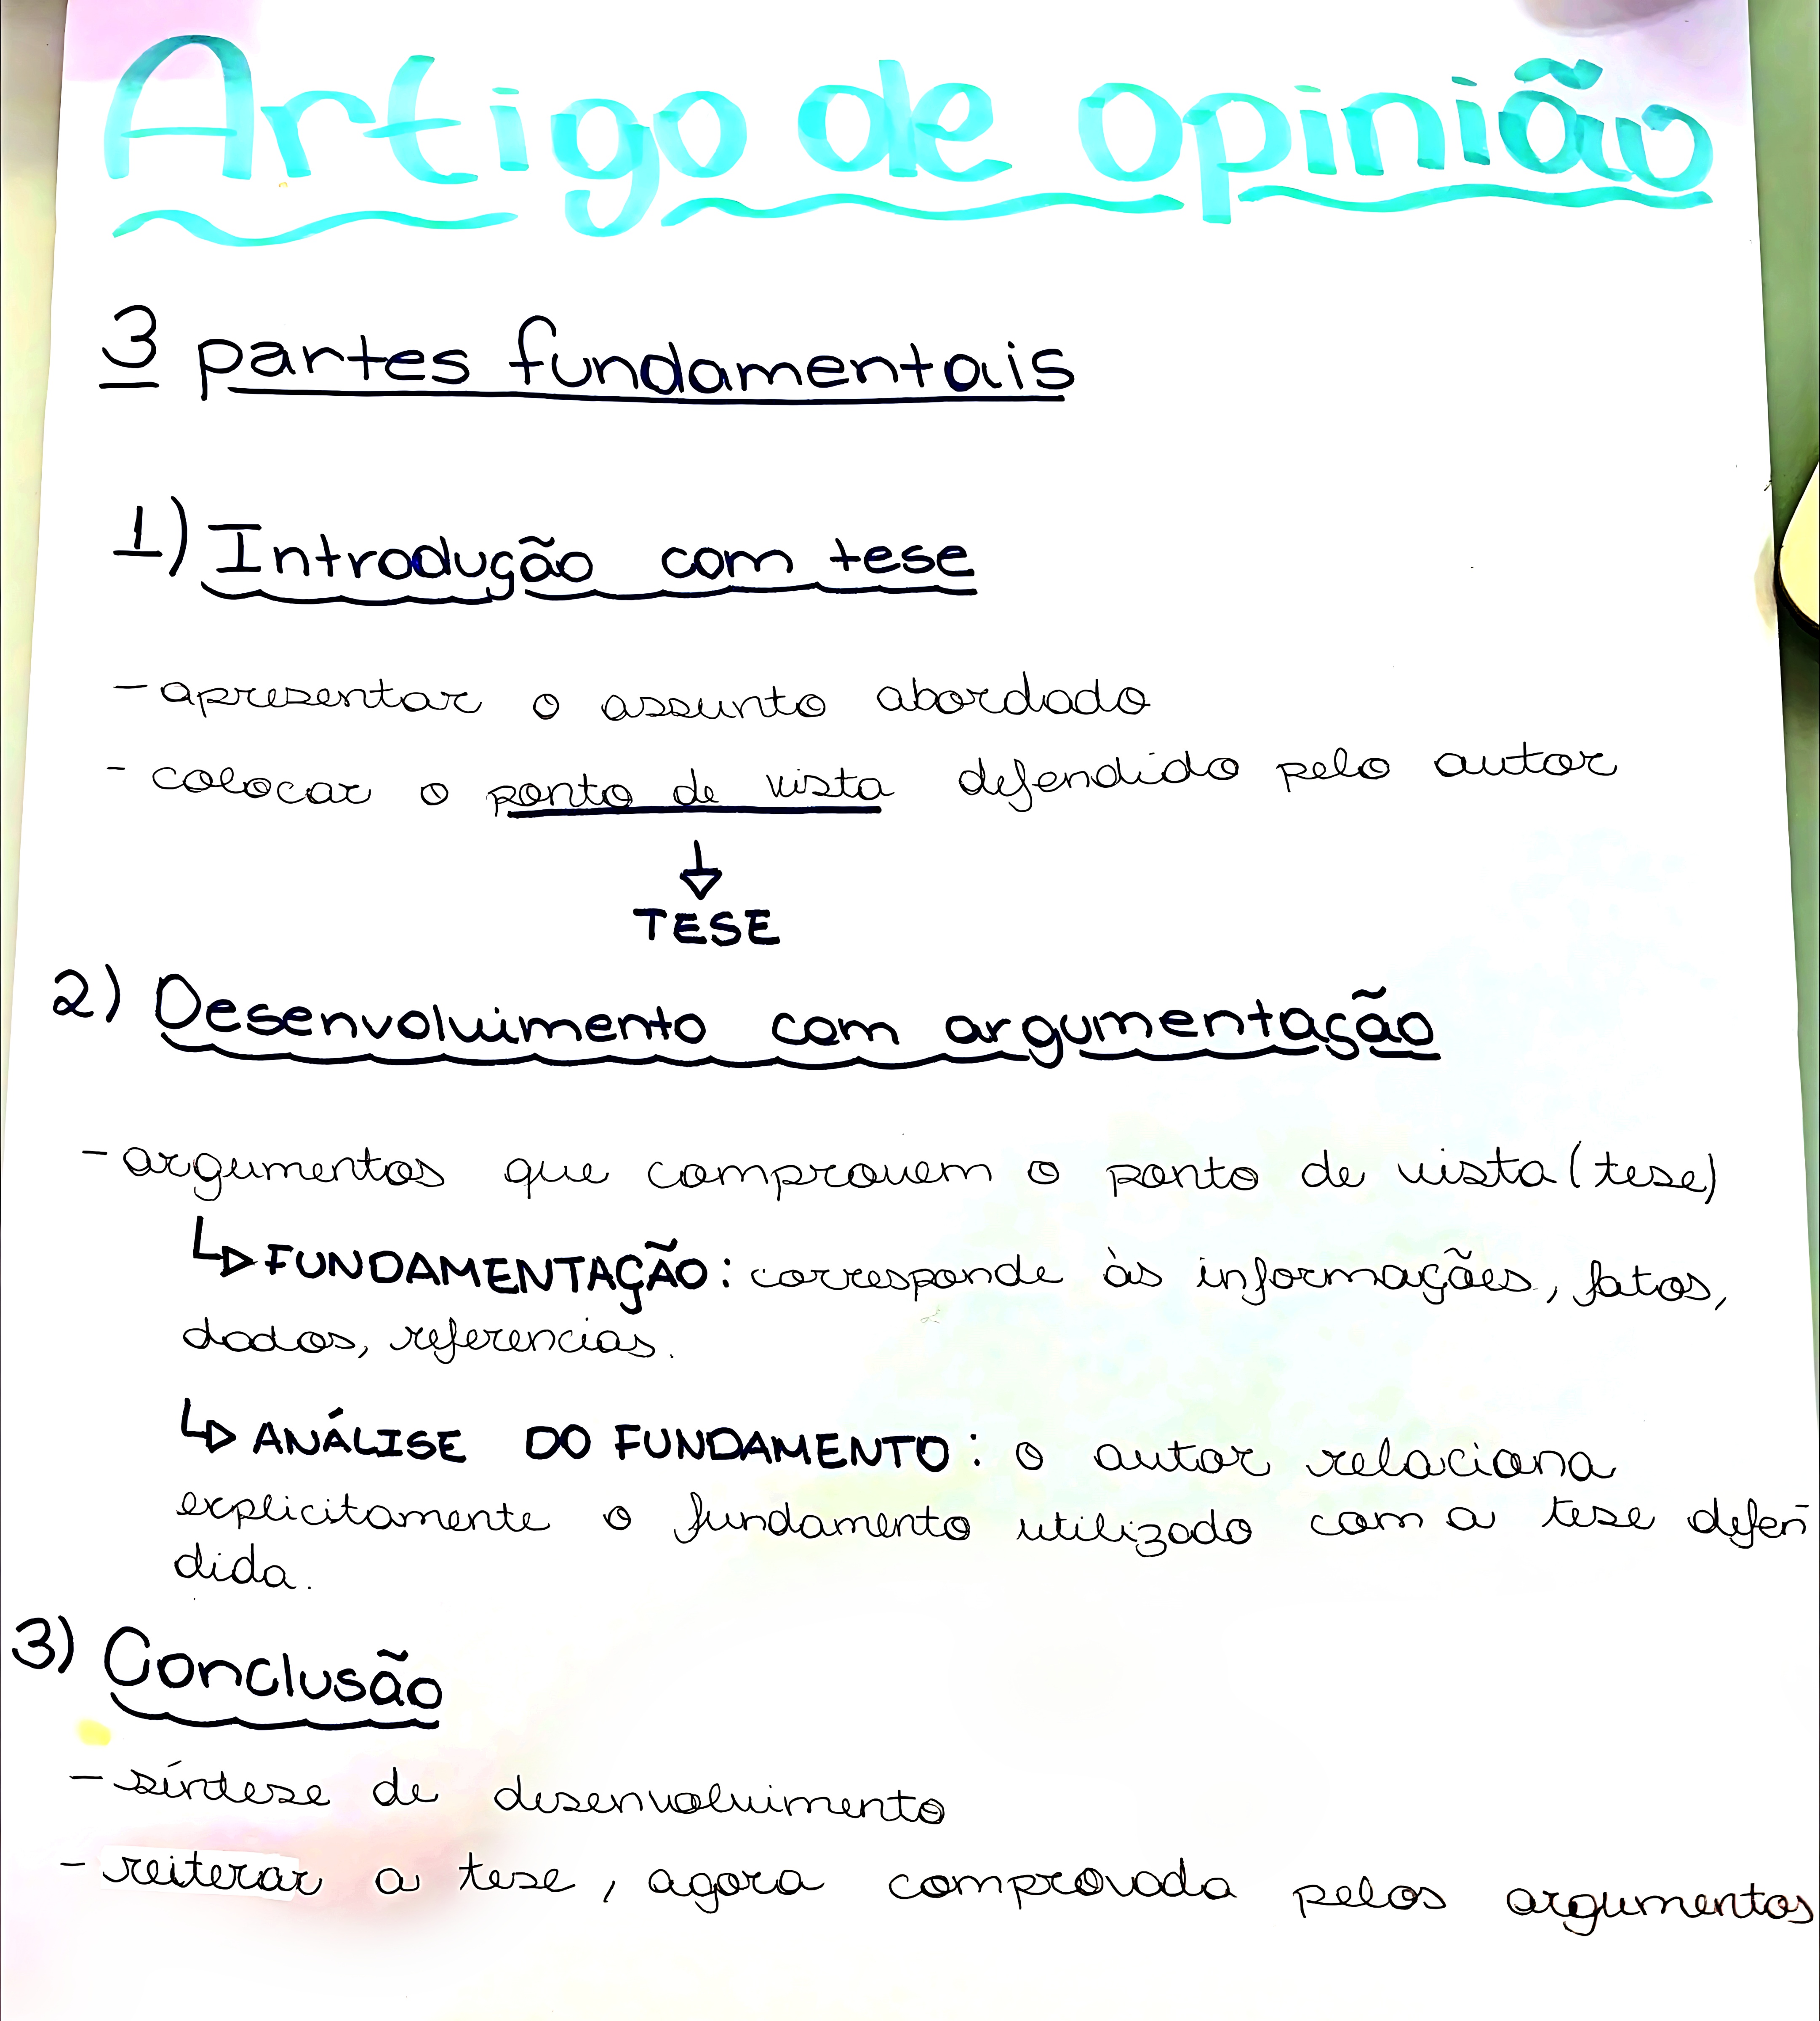 Artigo de opinião
3 partes fundamentais
1) Introdução com tese
- apresentar o assunto abordado
- colocar o ponto de vista defendido pelo autor
TESE
2) Desenvolvimento com argumentação
- argumentos que comprovem o ponto de vista (tese)
FUNDAMENTAÇÃO: corresponde às informações, fatos,
dados, referencias.
ANÁLISE DO FUNDAMENTO: o autor relaciona
explicitamente o fundamento utilizado com a tese defen
dida.
3) Conclusão
- síntese de desenvolvimento
- reiterar a tese, agora comprovada pelos argumentos